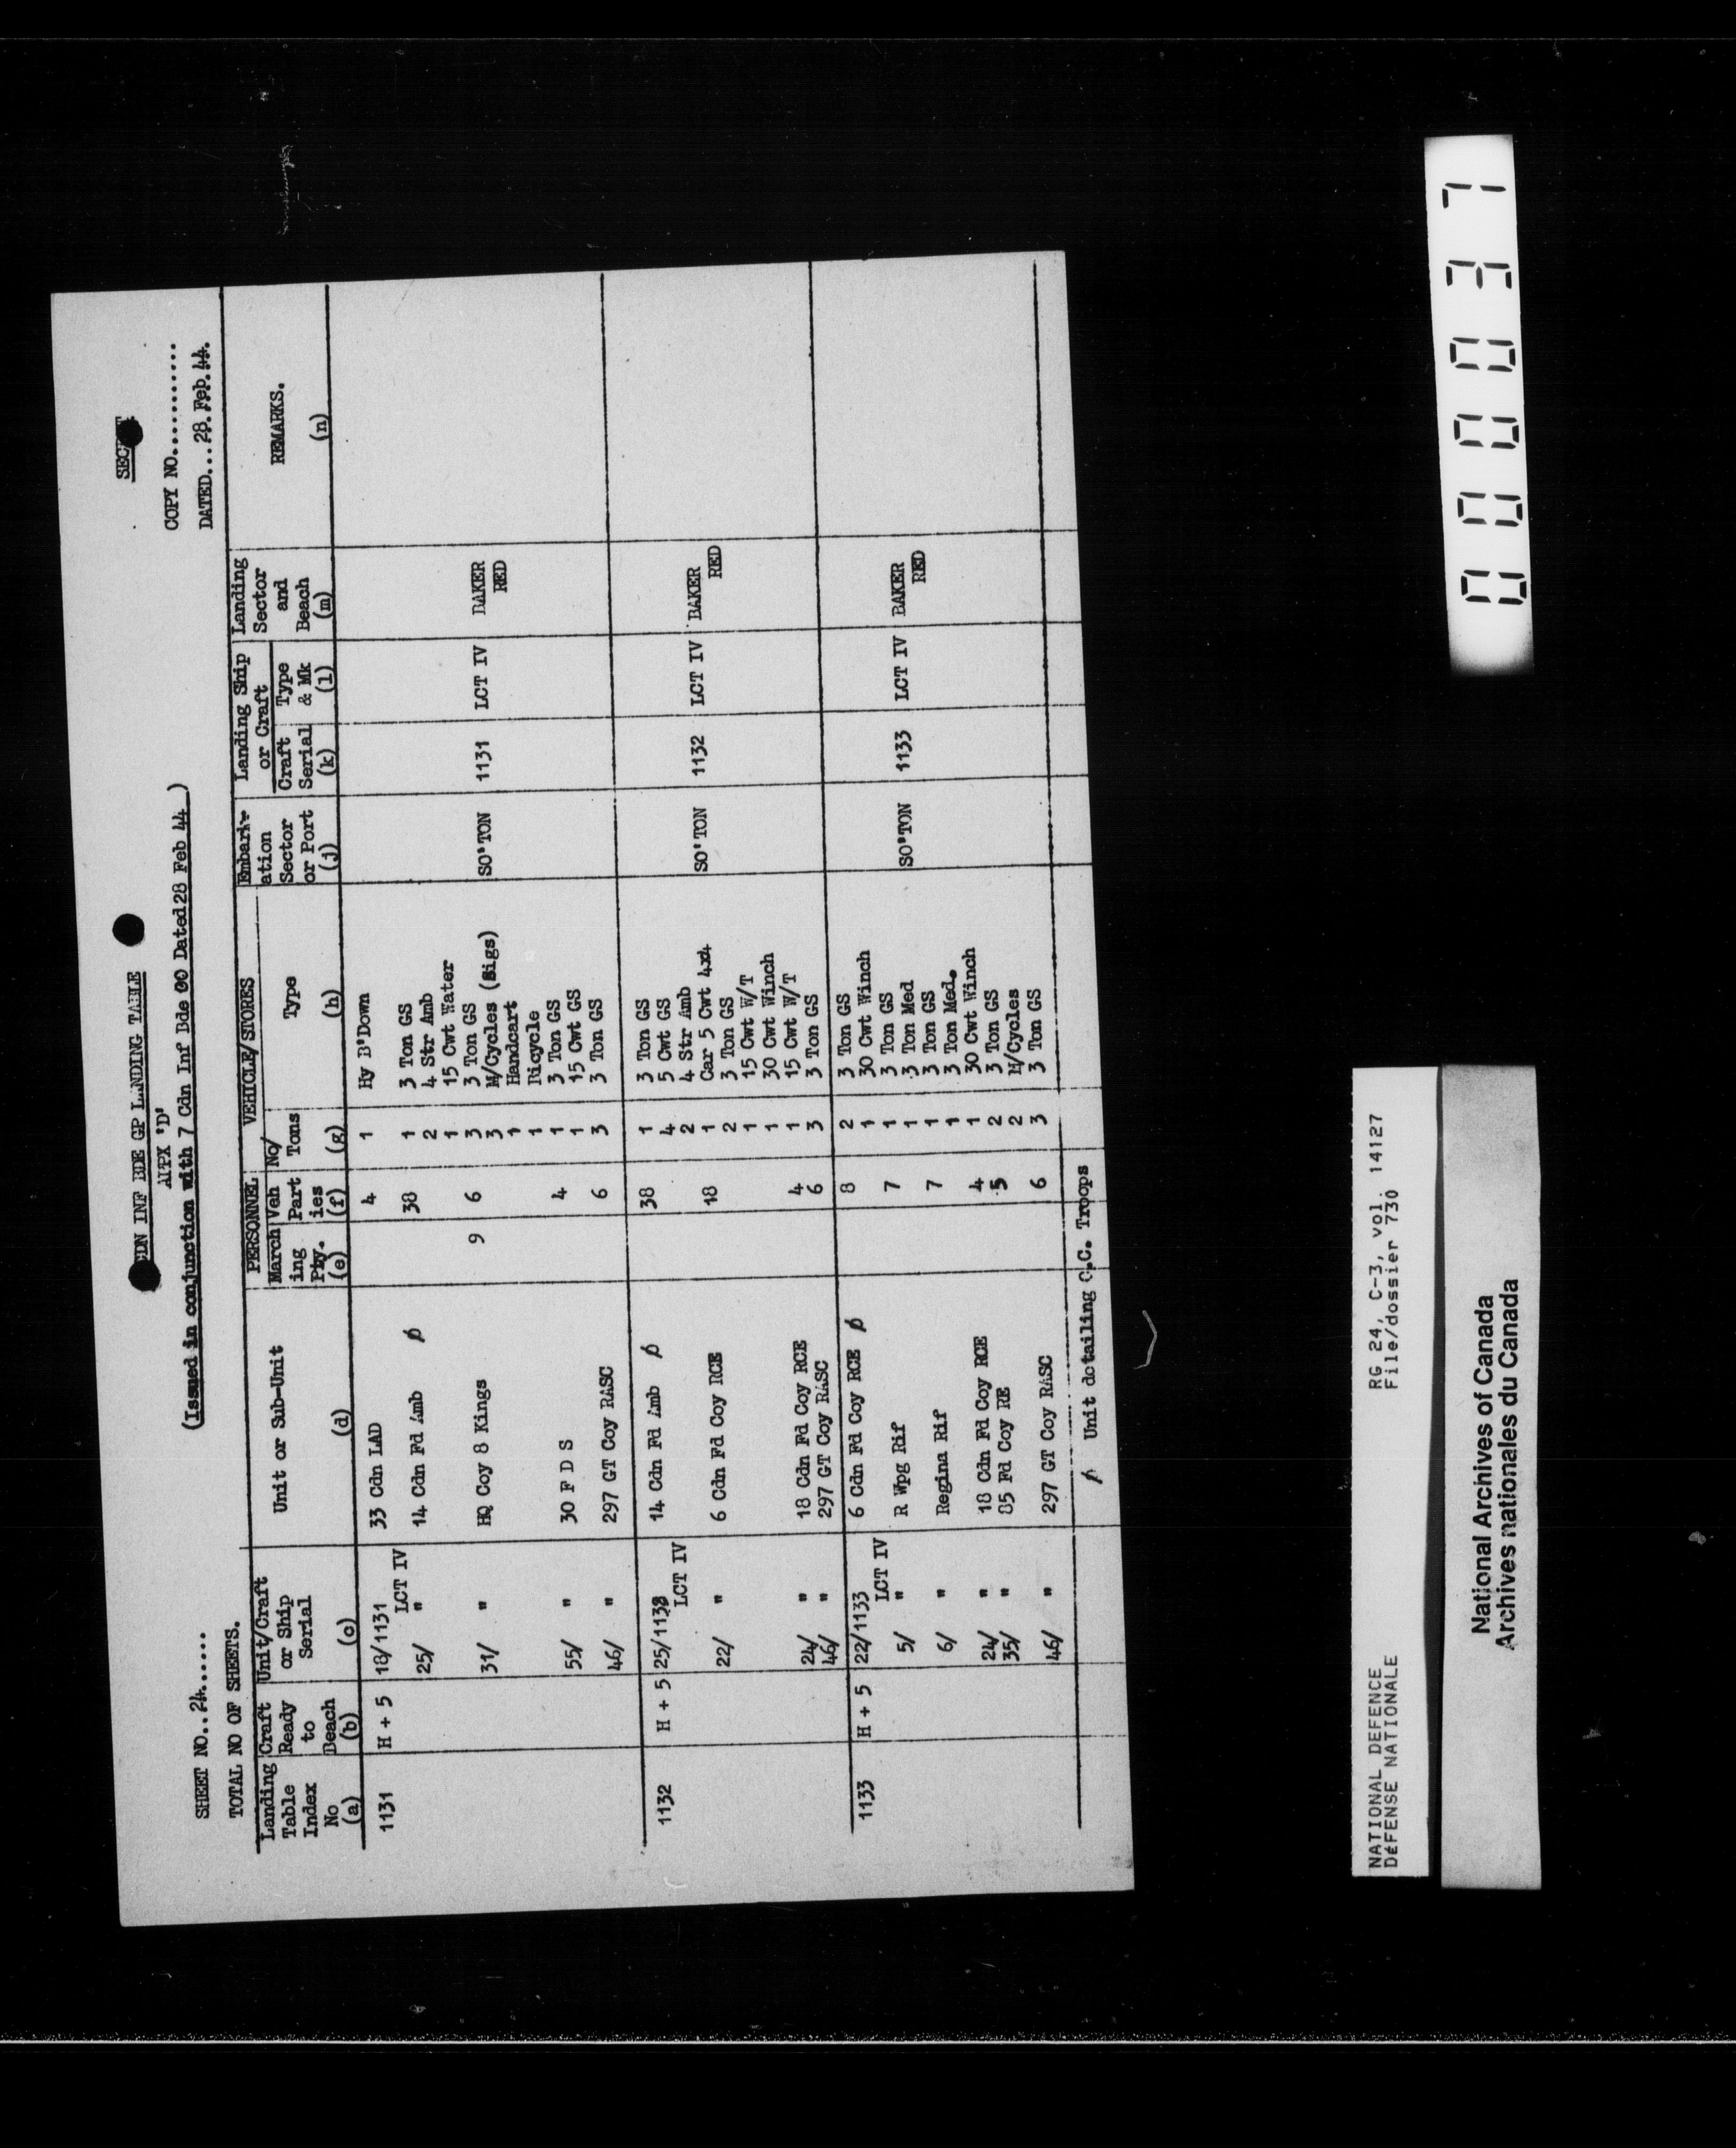 SECRET
CDN INF BDE GP LANDING TABLE
COPY NO...........
APPX 'D'
SHEET NO..24.....
DATED...28.Feb.44.
(Issued in conjunction with 7 Cdn Inf Bde OO Dated 28 Feb 44 )
TOTAL NO OF SHEETS.
Landing Table Index No (a) | Craft Ready to Beach (b) | Unit/Craft or Ship Serial (c) | Unit or Sub-Unit (d) | PERSONNEL March ing Pty. (e) | Veh Part ies (f) | VEHICLE/STORES No/ Tons (g) | Type (h) | Embark- ation Sector or Port (j) | Landing Ship or Craft Craft Serial (k) | Type & Mk (l) | Landing Sector and Beach (m) | REMARKS. (n)
1131 H + 5 18/1131 33 Cdn LAD 4 1 Hy B'Down
LCT IV
25/ " 14 Cdn Fd Amb ø 38 1 3 Ton GS
2 4 Str Amb
1 15 Cwt Water
31/ " HQ Coy 8 Kings 9 6 3 3 Ton GS SO'TON 1131 LCT IV BAKER
3 M/Cycles (Sigs) RED
1 Handcart
1 Bicycle
55/ " 30 F D S 4 1 3 Ton GS
1 15 Cwt GS
46/ " 297 GT Coy RASC 6 3 3 Ton GS
1132 H + 5 25/1132 14 Cdn Fd Amb ø 38 1 3 Ton GS
LCT IV 4 5 Cwt GS
2 4 Str Amb
22/ " 6 Cdn Fd Coy RCE 18 1 Car 5 Cwt 4x4 SO'TON 1132 LCT IV BAKER
2 3 Ton GS RED
1 15 Cwt W/T
1 30 Cwt Winch
24/ " 18 Cdn Fd Coy RCE 4 1 15 Cwt W/T
46/ " 297 GT Coy RASC 6 3 3 Ton GS
1133 H + 5 22/1133 6 Cdn Fd Coy RCE ø 8 2 3 Ton GS
LCT IV 1 30 Cwt Winch
5/ " R Wpg Rif 7 1 3 Ton GS
1 3 Ton Med SO'TON 1133 LCT IV BAKER
6/ " Regina Rif 7 1 3 Ton GS RED
1 3 Ton Med.
24/ " 18 Cdn Fd Coy RCE 4 1 30 Cwt Winch
35/ " 85 Fd Coy RE 5 2 3 Ton GS
2 M/Cycles
46/ " 297 GT Coy RASC 6 3 3 Ton GS
ø Unit detailing O.C. Troops
0000037
NATIONAL DEFENCE RG 24, C-3, vol. 14127
DÉFENSE NATIONALE File/dossier 730
National Archives of Canada
Archives nationales du Canada